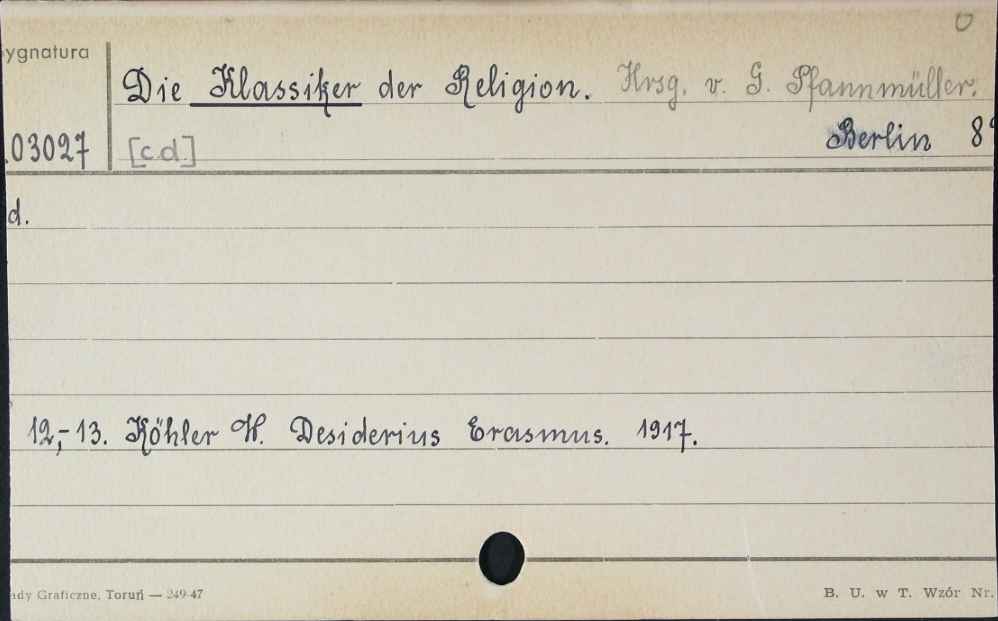 0
ygnatura
Die Klassiker der Religion. Hrsg. v. G. Pfannmüller.
03027 [c.d.] Berlin 8°
d.
12,-13. Köhler W. Desiderius Erasmus. 1917.
ady Graficzne, Toruń — 249-47 B. U. w T. Wzór Nr.